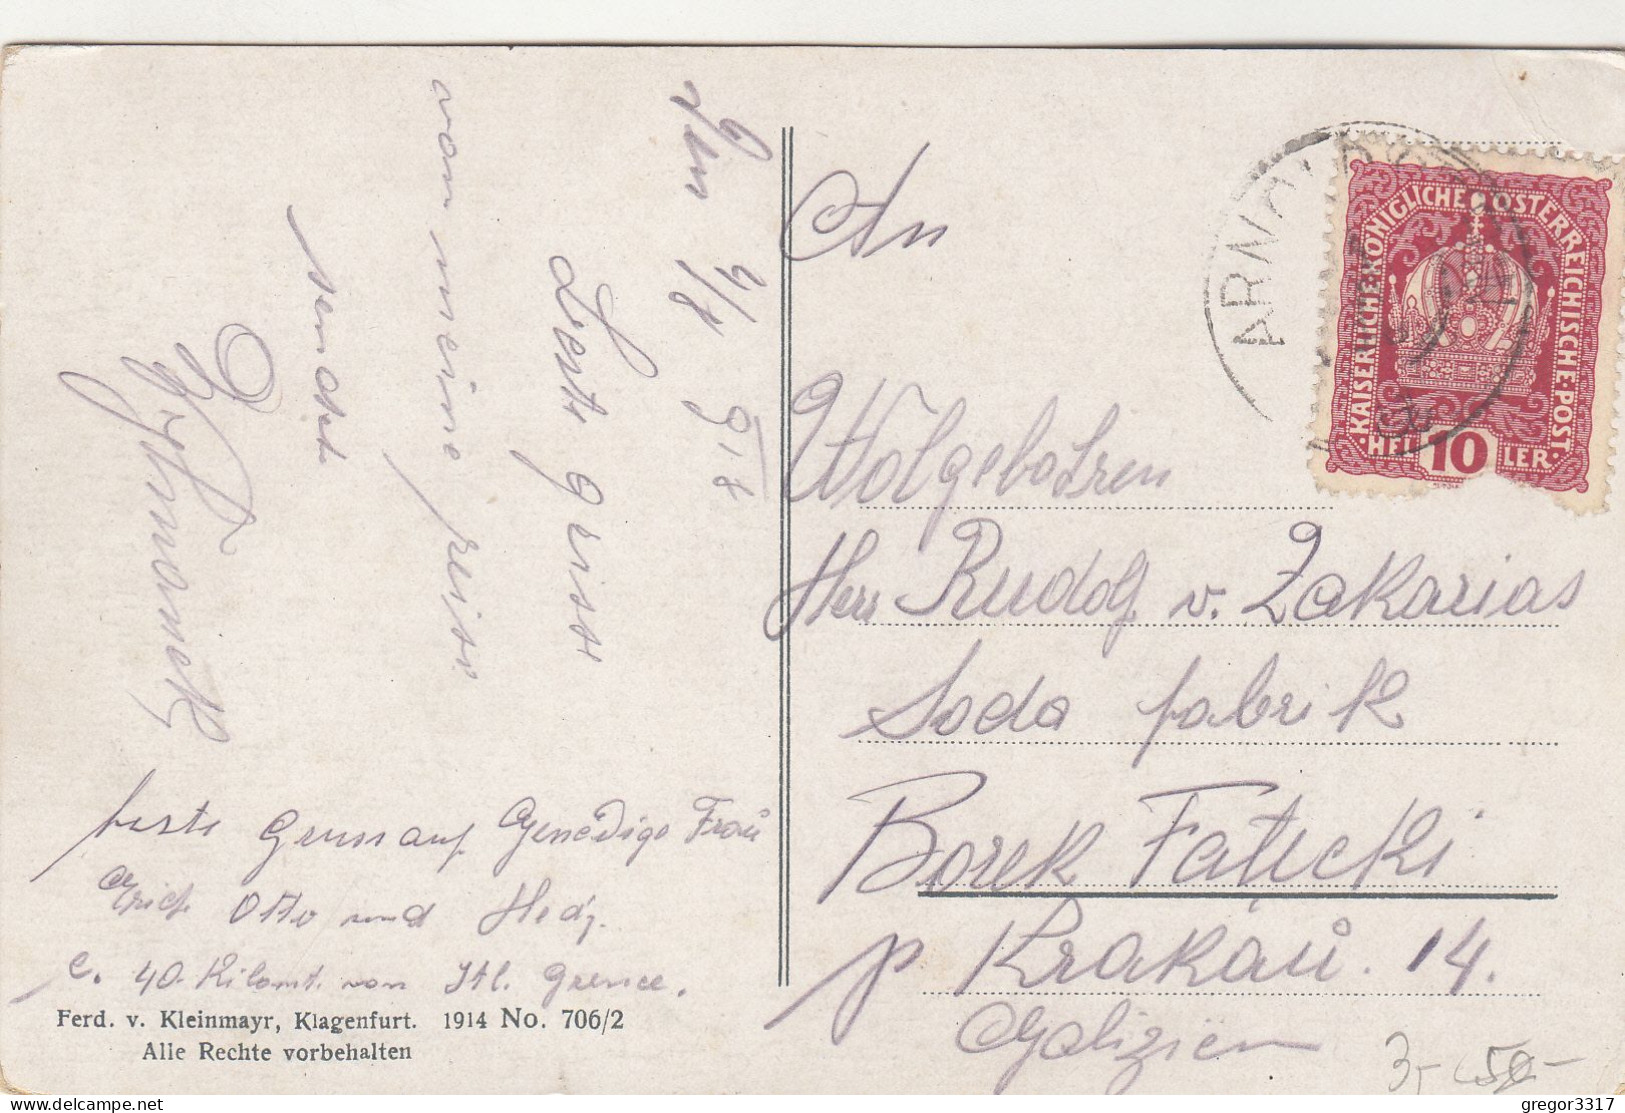 Den 4/8 918
Beste griss
von meine reise
sendet
beste Gruss auf Genedige Frau
Erich Otto und Hedy.
c. 40. Kilomt. von Itl. Grence.
Ferd. v. Kleinmayr, Klagenfurt. 1914 No. 706/2
Alle Rechte vorbehalten
An
Wolgebohren
Herr Rudolf v. Zakarias
Soda fabrik
Borek Falecki
p Krakau. 14.
Galizien
KAISERLICHE·KÖNIGLICHE·ÖSTERREICHISCHE·POST
HELLER
10
ARNOLDSTEIN
3,- 50-
gregor3317